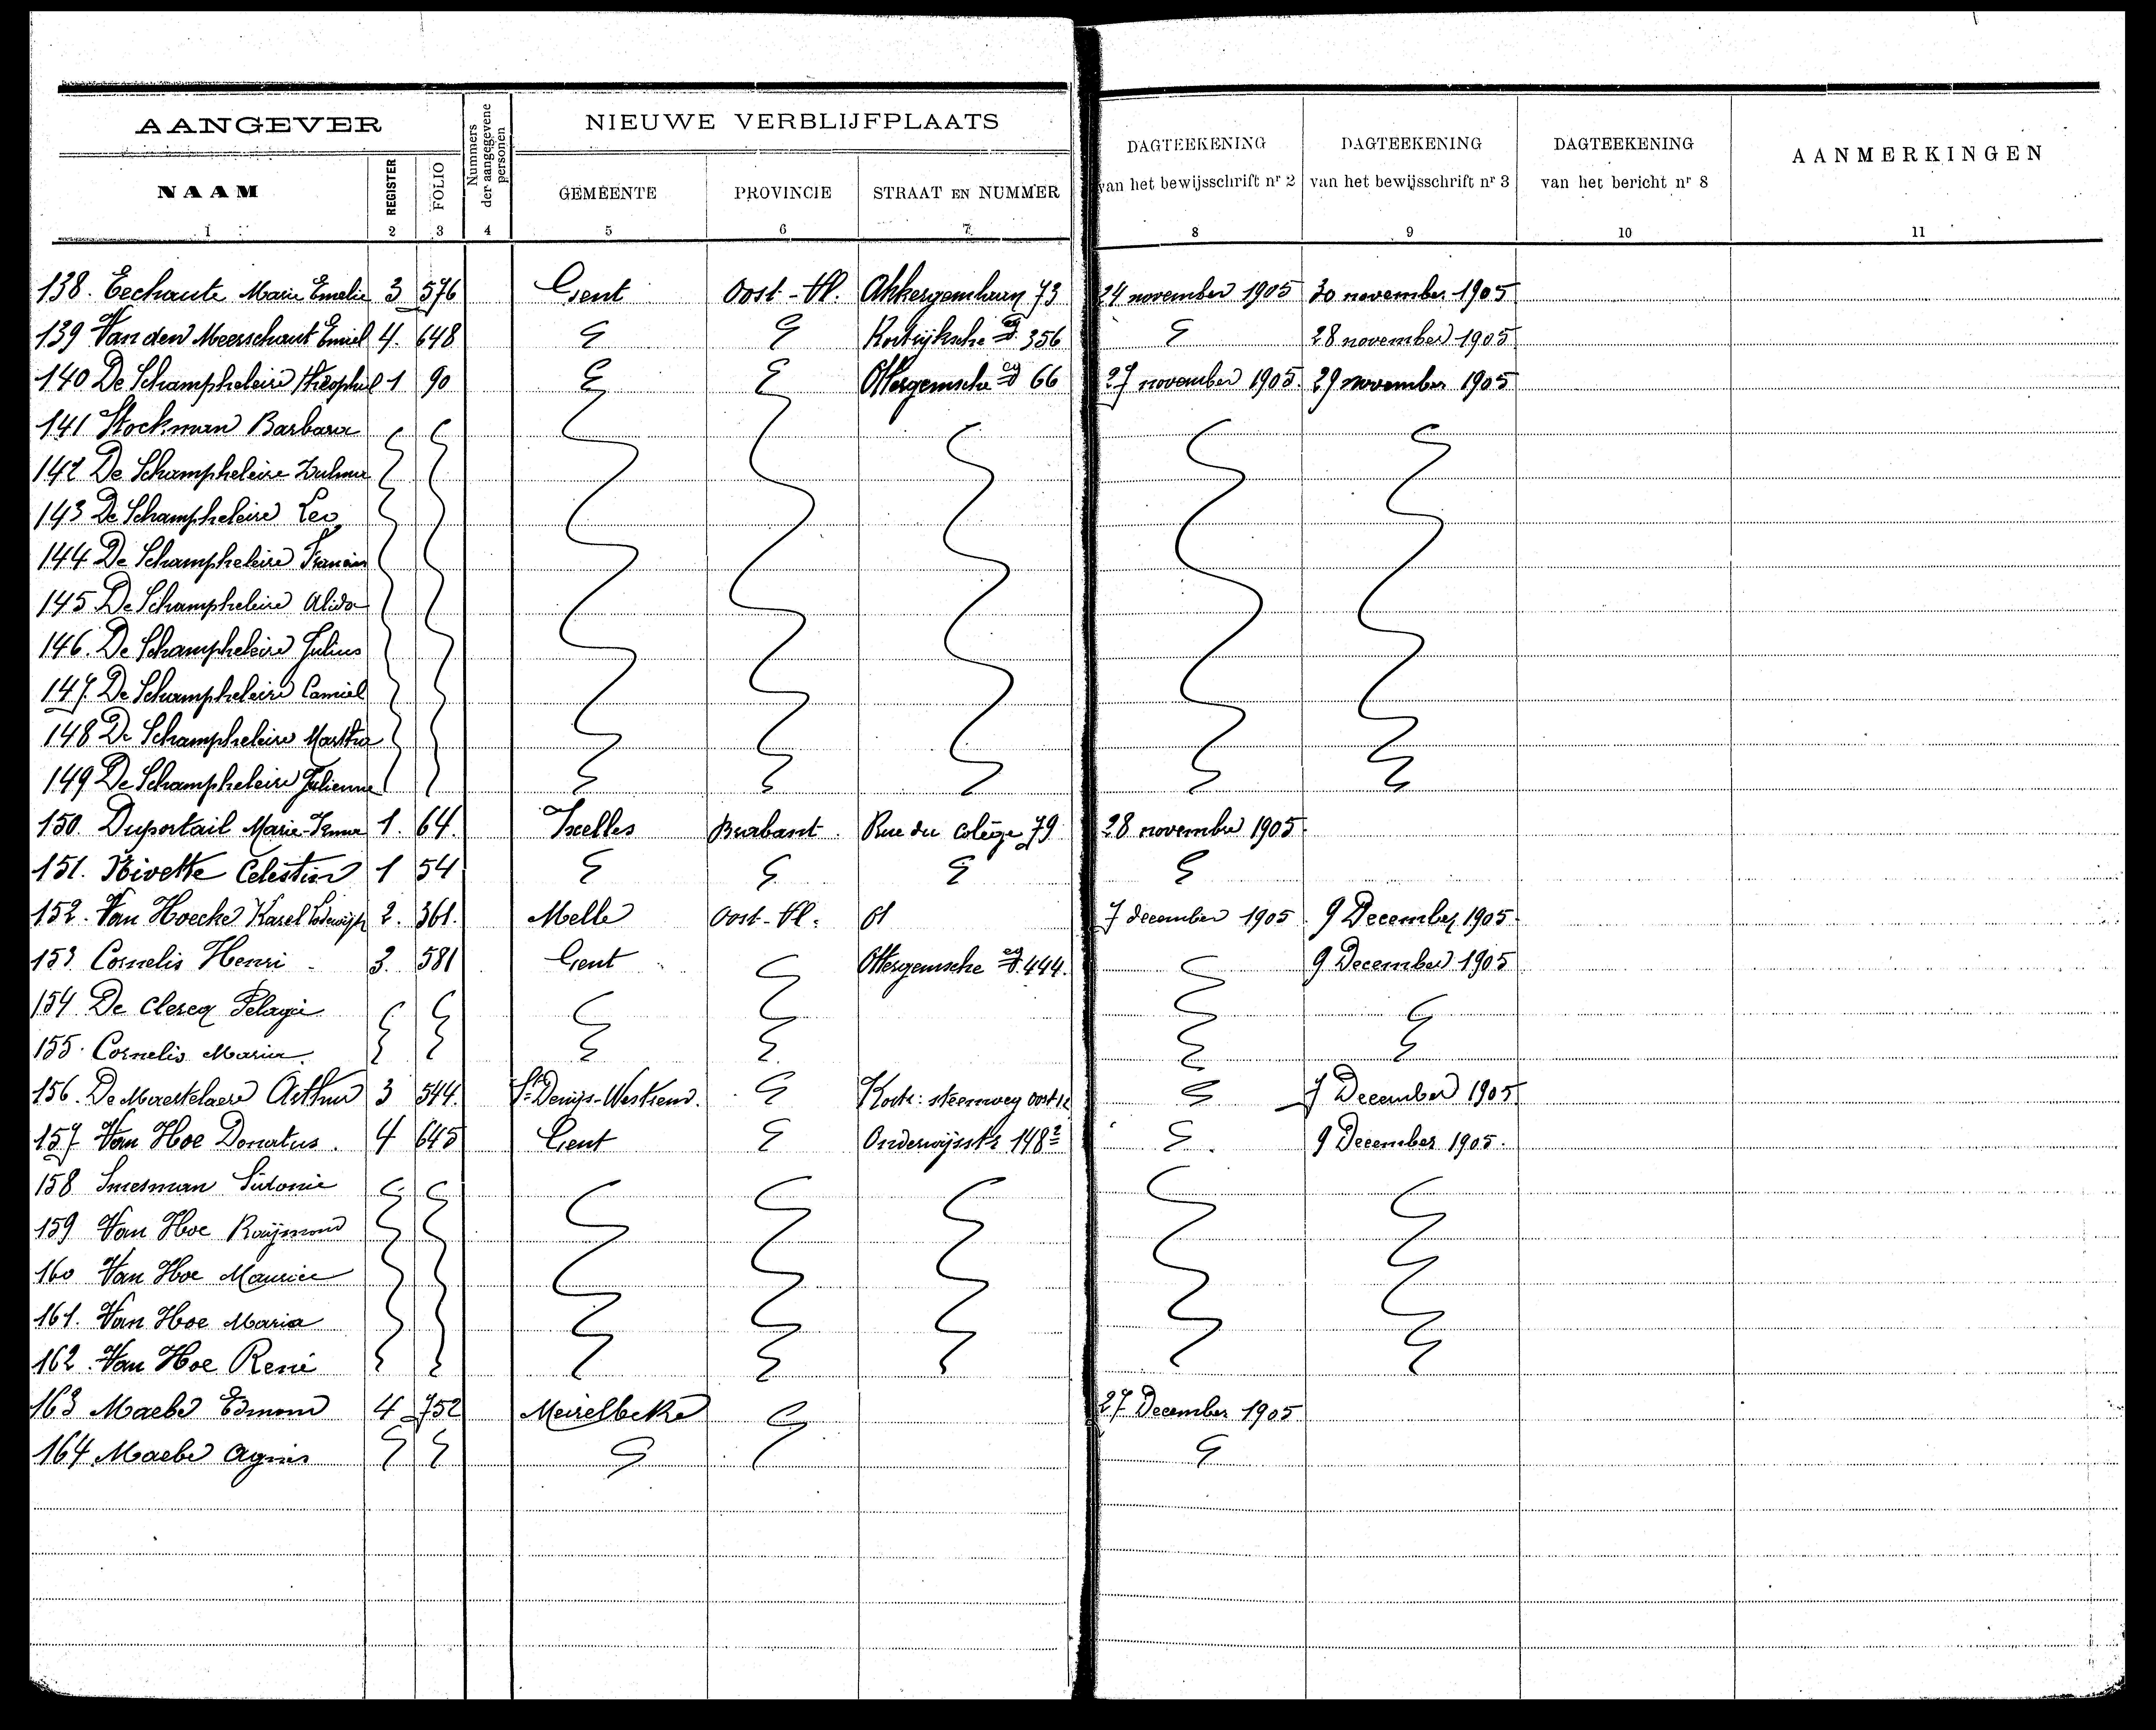 AANGEVER
Nummers der aangegevene personen
NIEUWE VERBLIJFPLAATS
DAGTEEKENING van het bewijsschrift nr 2
DAGTEEKENING van het bewijsschrift nr 3
DAGTEEKENING van het bericht nr 8
AANMERKINGEN
NAAM REGISTER FOLIO GEMEENTE PROVINCIE STRAAT EN NUMMER
1 2 3 4 5 6 7 8 9 10 11
138. Eechaute Marie Emelie 3 576 Gent Oost-Vl. Akkergemkaey 73 24 november 1905 30 november 1905
139 Van den Meerschaut Emiel 4. 648 Kortrijksche 356 28 november 1905
140 De Schampheleire Théophiel 1 90 Ottergemsche 66 27 november 1905. 29 november 1905
141 Stockman Barbara
142 De Schampheleire Zulma
143 De Schampheleire Leo
144 De Schampheleire
145 De Schampheleire Alida
146. De Schampheleire Julius
147. De Schampheleire Camiel
148 De Schampheleire Martha
149 De Schampheleire Julienne
150. Duportail Marie 1. 64. Ixelles Brabant. Rue du Colège 79 28 november 1905.
151. Nivette Celestin 1 54
152. Van Hoecke Karel Lodewijk 2. 361. Melle Oost-Vl. 61 7 december 1905 9 December 1905
153 Cornelis Henri 3. 581 Gent Ottergemsche 444. 9 December 1905
154 De Clercq Pelagie
155. Cornelis Maria
156. De Maertelaere Arthur 3 544. St Denijs-Westrem. Kortr: steenweg oost 7 December 1905
157 Van Hoe Donatus. 4 645 Gent Onderwijsstr 148² 9 December 1905.
158 Smesman Sidonie
159 Van Hoe Raÿmond
160 Van Hoe Maurice
161. Van Hoe Maria
162. Van Hoe René
163 Maebe Edmond 4 752 Meirelbeke 27 December 1905
164 Maebe Agnes